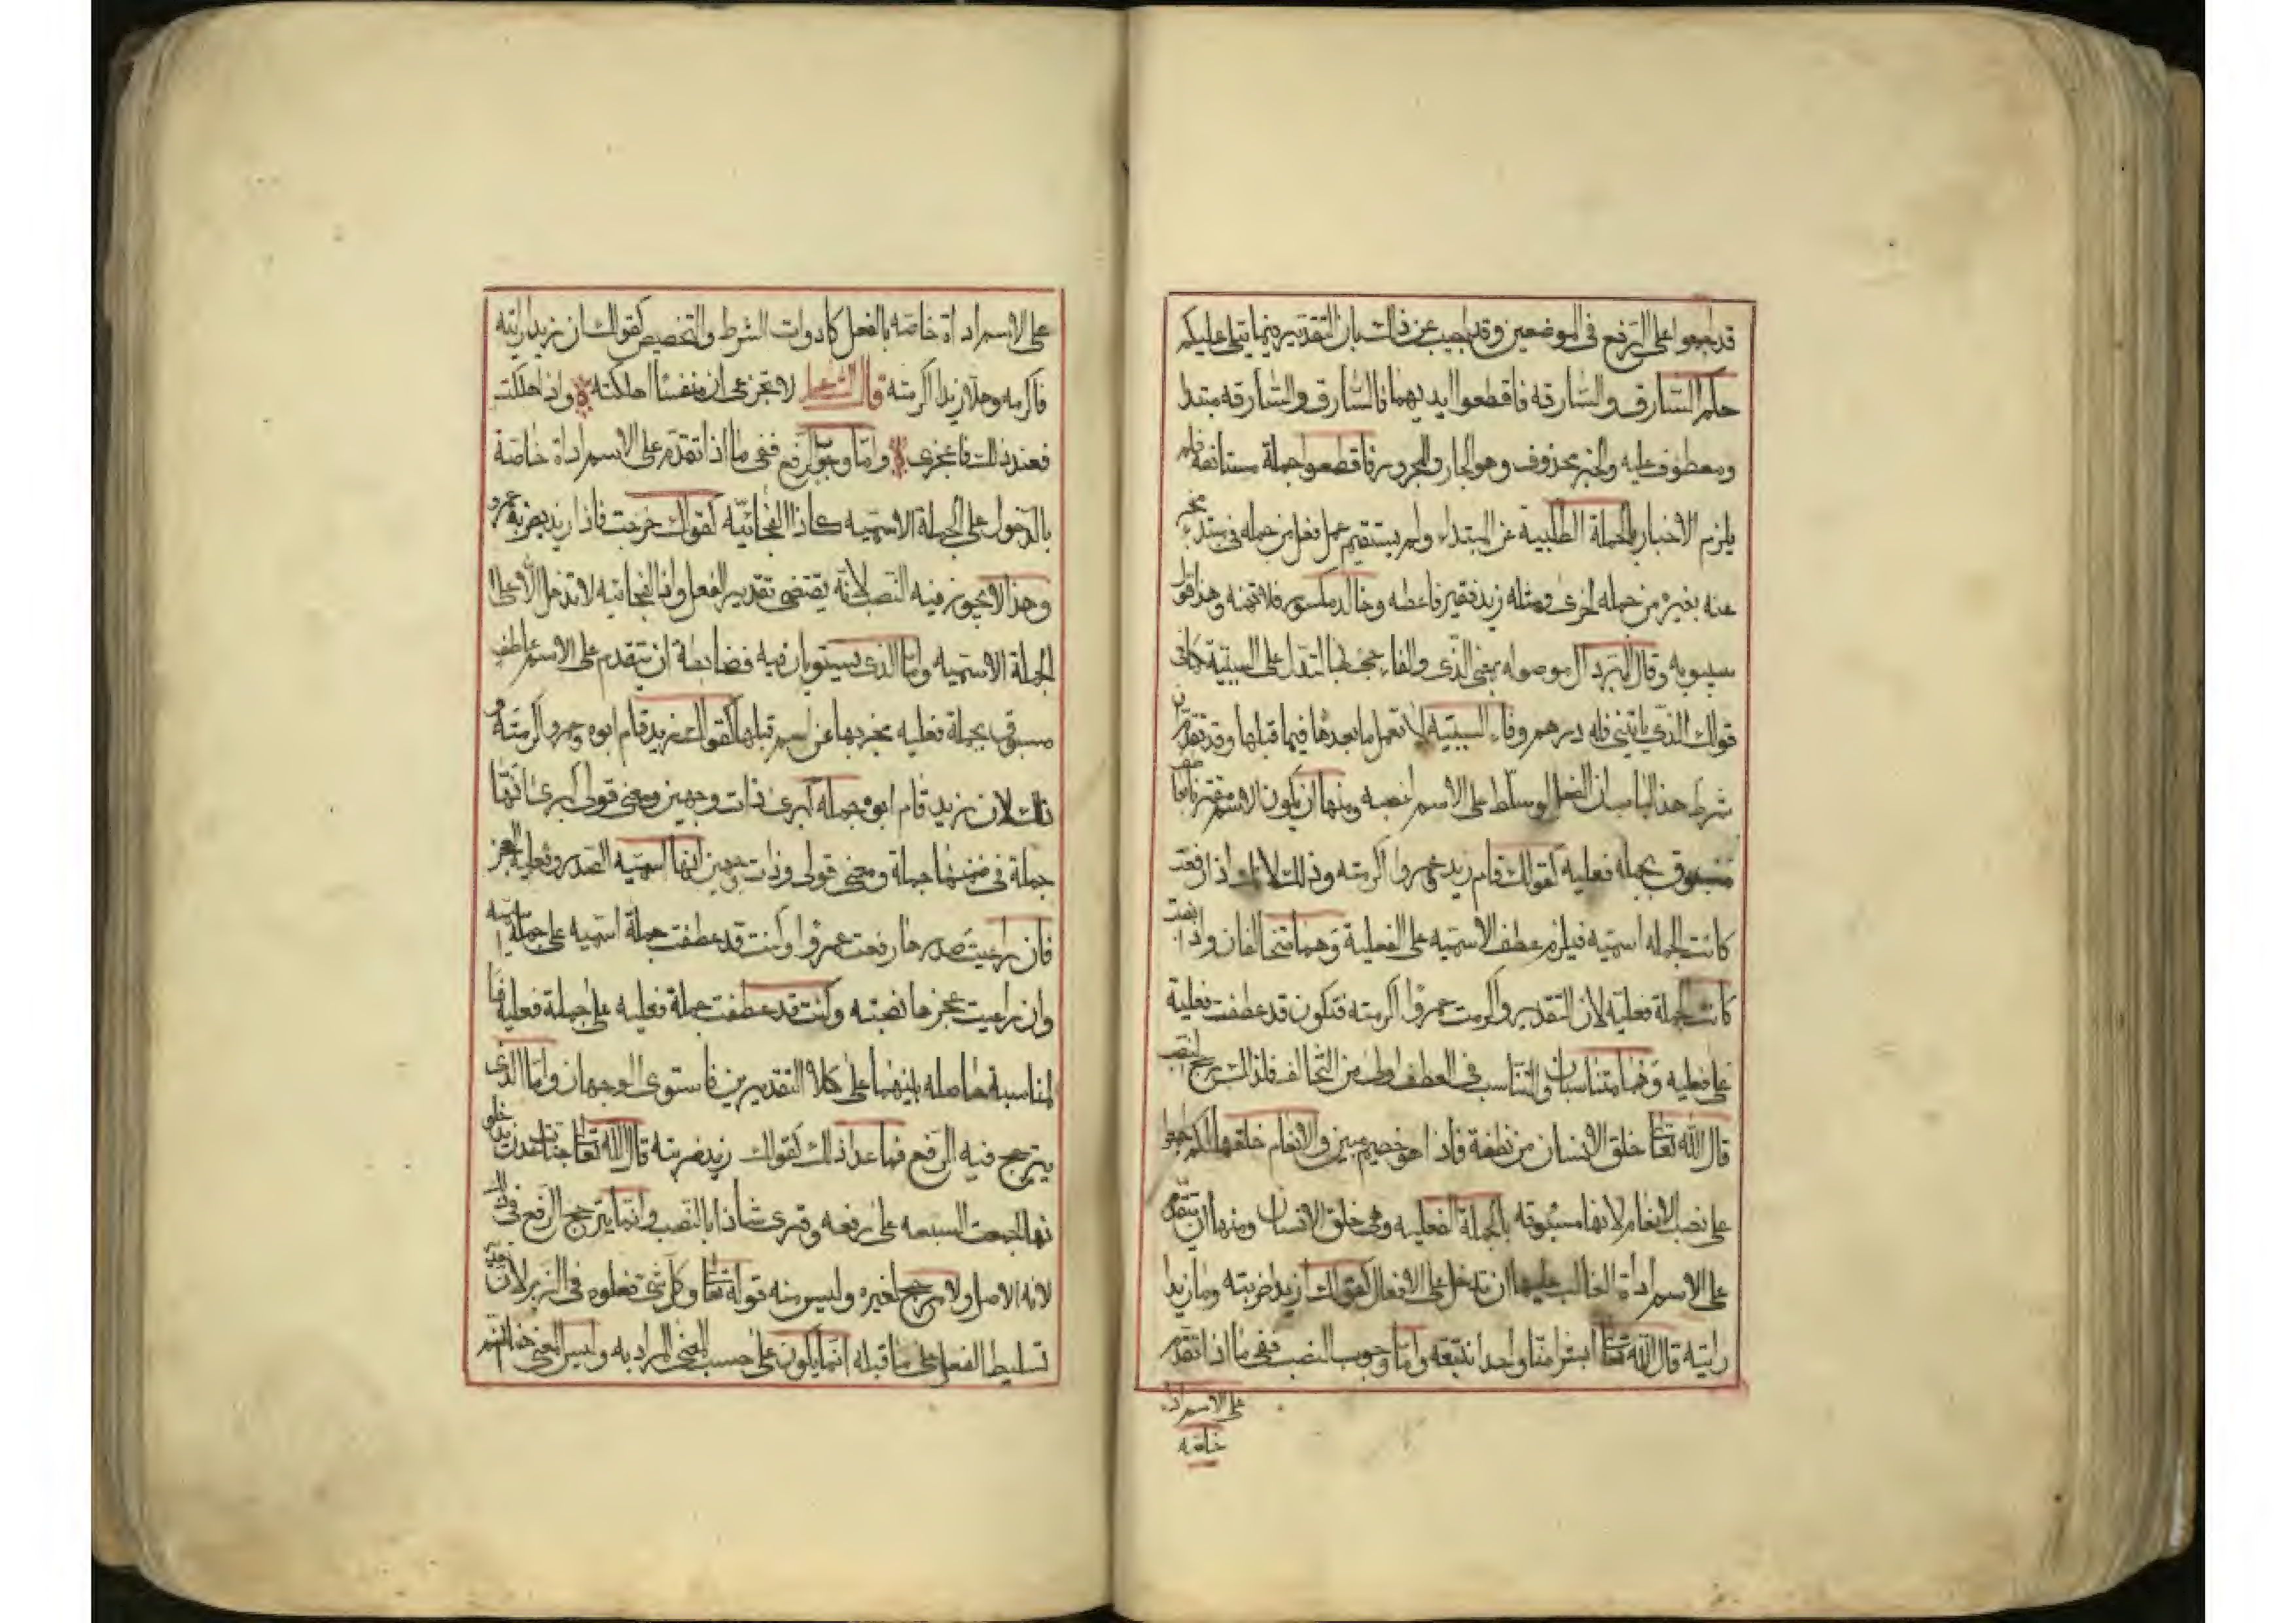 قد اجمعوا على الرفع في الموضعين وقد اجيب عن ذلك بان التقدير مما يتلى عليكم
حكم السارق والسارقه فاقطعوا ايديهما فالسارق والسارقه مبتدا
ومعطوف عليه والخبر محذوف وهو الجار والمجرور فاقطعوا جملة مستانفة فلم
يلزم الاخبار بالجملة الطلبية عن المبتداء ولم يستقيم عمل فعل من جمله في مبتدء مخبر
عنه بغيره من جمله اخرى ومثله زيد فقير فاعطه وخالد مكسور فلا تهنه وهذا قول
سيبويه وقال المبرد ال موصوله بمعنى الذى والفاء جئ بها لتدل على السببية كما في
قولك الذي ياتيني فله درهم وفاء السببيه لا تعمل ما بعدها فيما قبلها وقد تقدم ان
شرط هذا الباب ان الفعل لو سلط على الاسم لنصبه ومنها ان يكون الاسم مقترنا بعاطف
مسبوق بجمله فعليه كقولك قام زيد وعمروا اكرمته وذلك لانك اذا رفعت
كانت الجمله اسميه فيلزم عطف الاسميه على الفعلية وهما متخالفان واذا نصبت
كانت الجملة فعلية لان التقدير واكرمت عمروا اكرمته فتكون قد عطفت فعلية
على فعليه وهما متناسبان والتناسب في العطف اولى من التخالف فلذلك رجح النصب
قال الله تعا خلق الانسان من نطفة فاذا هو خصيم مبين والانعام خلقها لكم اجمعوا
على نصب الانعام لانها مسبوقه بالجملة الفعليه وهي خلق الانسان ومنها ان يتقدم
على الاسم اداة الغالب عليها ان تدخل على الافعال كقولك ازيدا ضربته وما زيدا
رايته قال الله تعا ابشرا منا واحدا نتبعه واما وجوب النصب ففي ما اذا تقدم
على الاسم اداة
خاصه
على الاسم اداة خاصه بالفعل كادوات الشرط والتحضيض كقولك ان زيدا رايته
فاكرمه وهلا زيدا اكرمته قال الشاعر لا تجزعي ان منفسا اهلكته واذا هلكت
فعند ذلك فاجزعى واما وجوب الرفع ففي ما اذا تقدم على الاسم اداة خاصة
بالدخول على الجملة الاسميه كاذا الفجائيه كقولك خرجت فاذا زيد يضربه عمرو
وهذا لا يجوز فيه النصب لانه يقتضى تقدير الفعل واذا الفجائيه لا تدخل الا على
الجملة الاسميه واما الذى يستويان فيه فضابطة ان يتقدم على الاسم عاطف
مسبوق بجملة فعليه مخبر بها عن اسم قبلها كقولك زيد قام ابوه وعمروا اكرمته و
ذلك لان زيد قام ابوه جملة كبرى ذات وجهين ومعنى قولى كبرى انها
جملة في ضمنها جملة ومعنى قولى وذات وجهين انها اسميه الصدر وفعلية العجز
فان راعيت صدرها رفعت عمروا وكنت قد عطفت جملة اسميه على جملة اسميه
وان راعيت عجزها نصبته وكنت قد عطفت جملة فعليه على جملة فعلية فا
لمناسبة حاصله بينهما على كلا التقديرين فاستوى الوجهان واما الذي
يترجح فيه الرفع فما عدا ذلك كقولك زيد ضربته قال الله تعا جنات عدن يدخلو
نها اجمعت السبعه على رفعه وقرى شاذا بالنصب وانما يترجح الرفع في ذلك
لانه الاصل ولا مرجح لغيره وليس منه قوله تعا وكل شي فعلوه في الزبر لان تقدير
تسليط الفعل على ما قبله انما يكون على حسب المعنى المراد به وليس المعنى هنا انهم